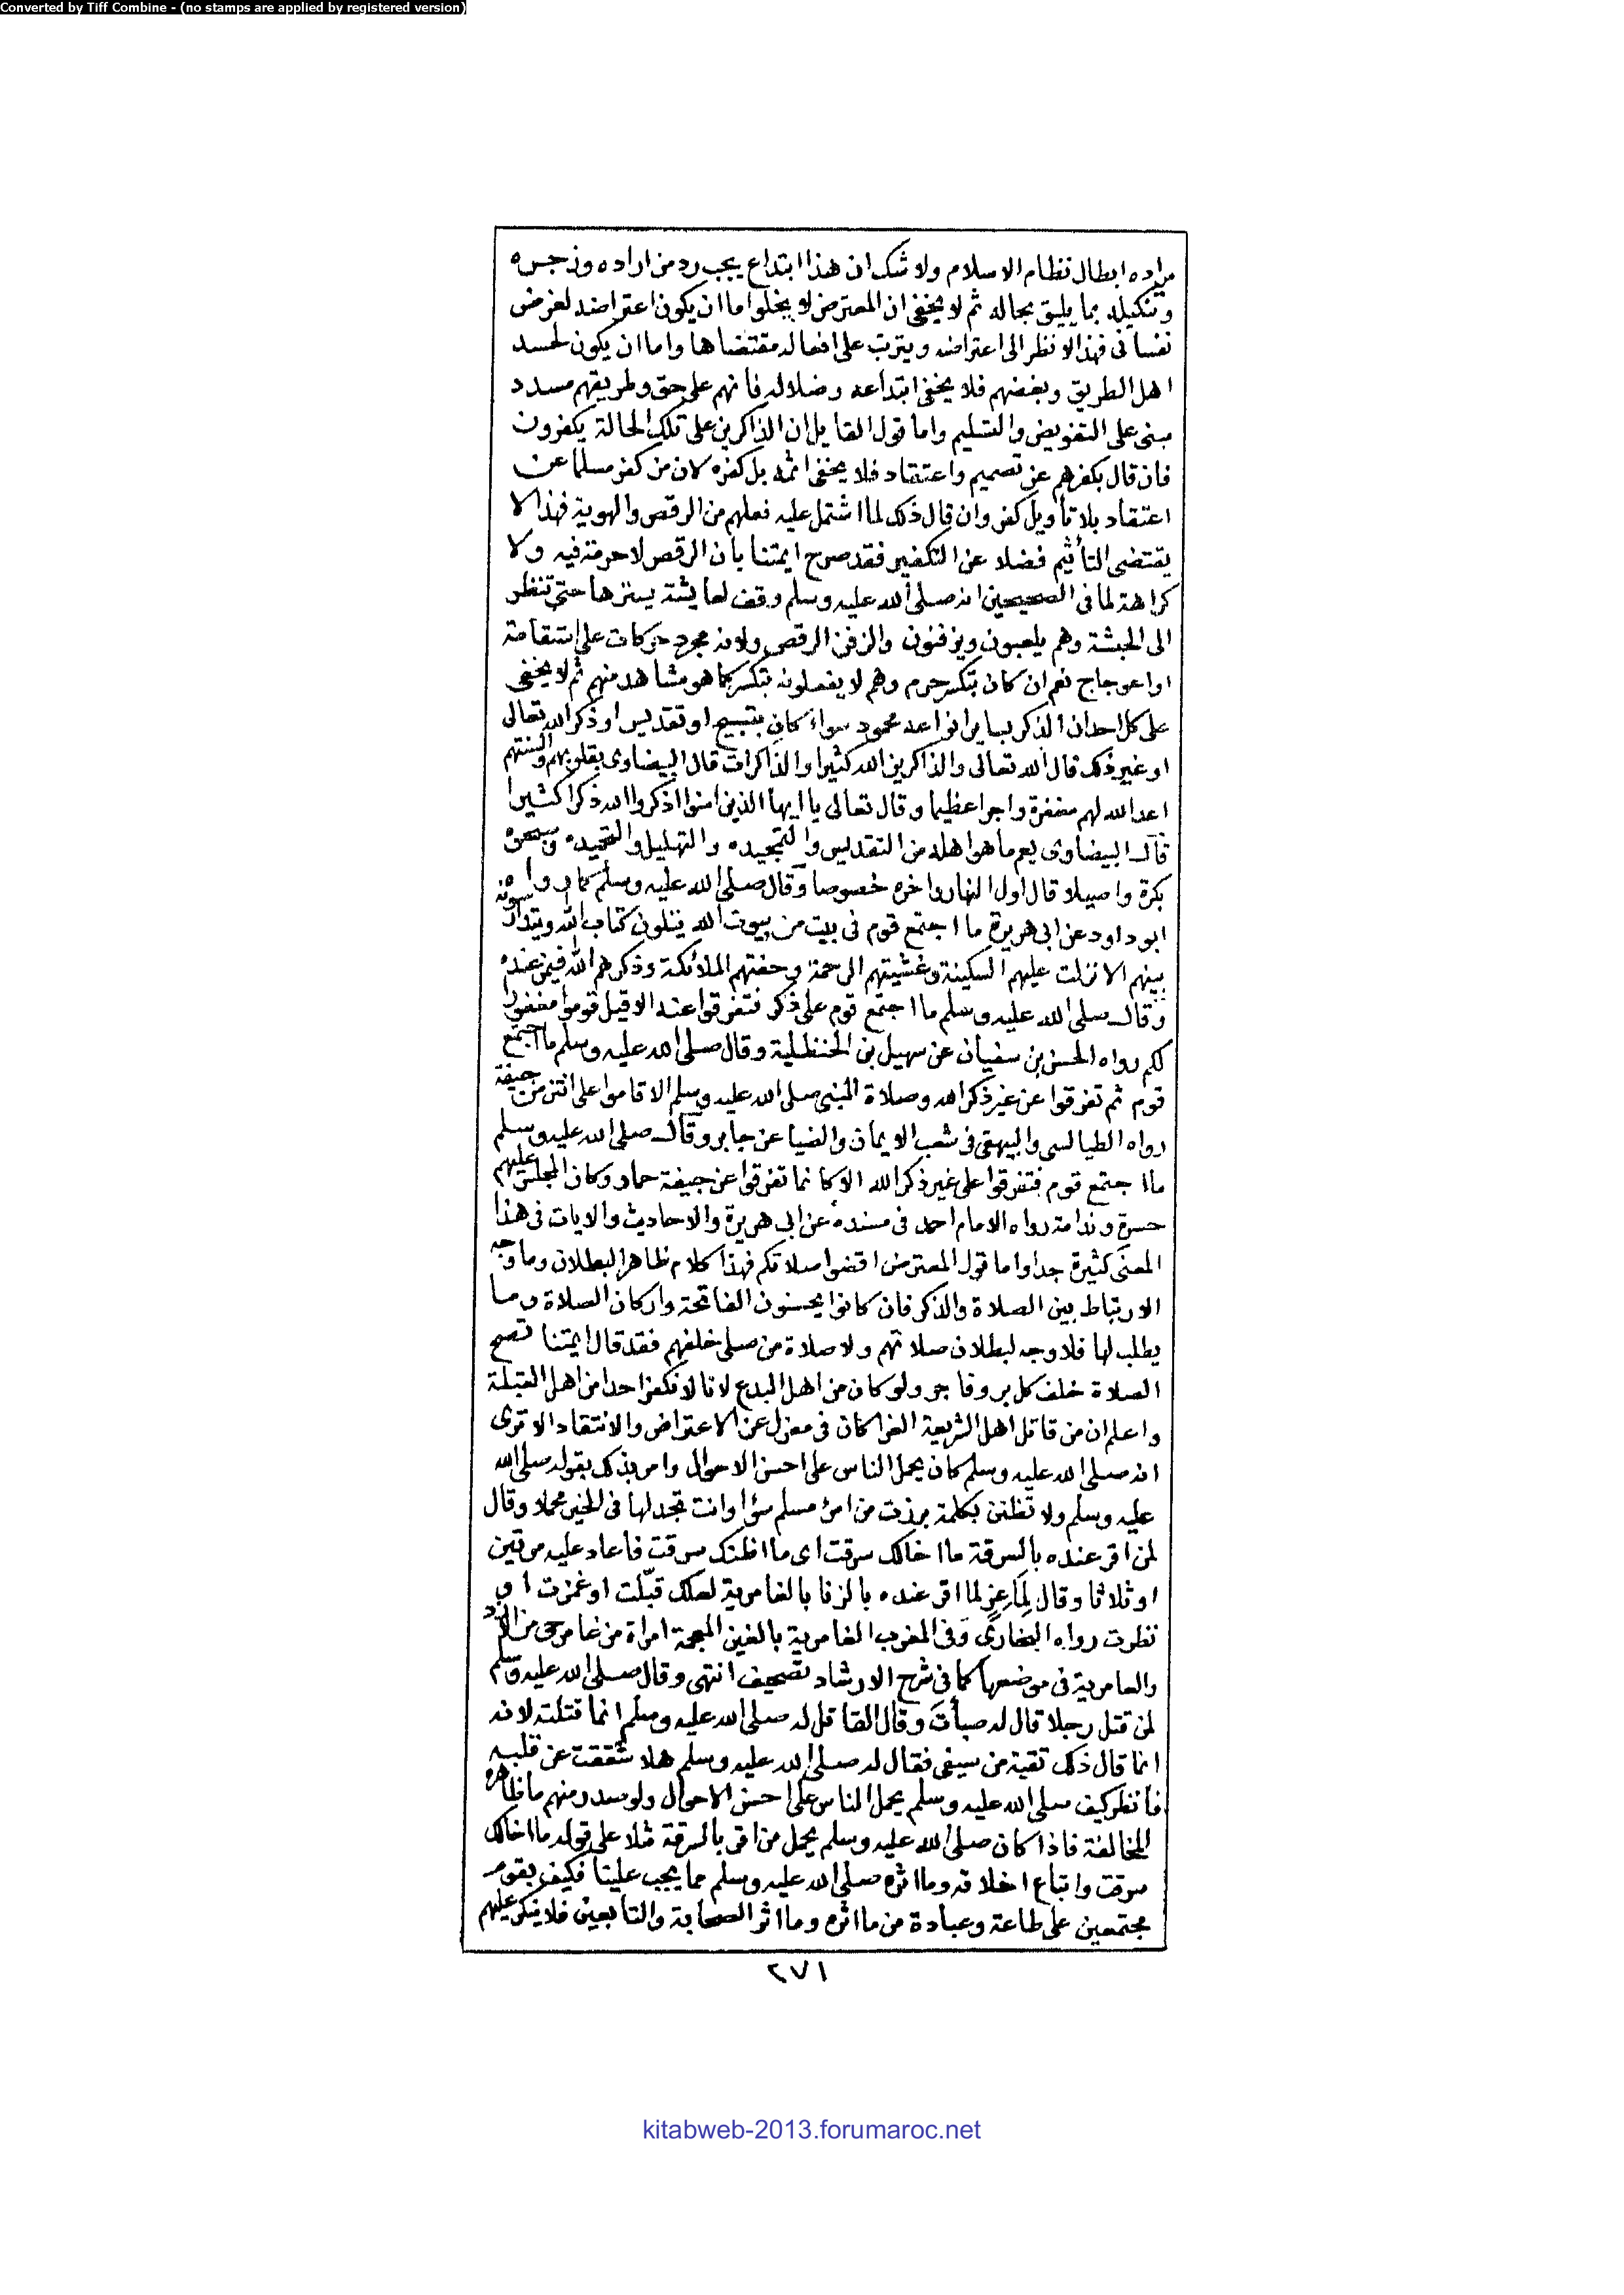 Converted by Tiff Combine - (no stamps are applied by registered version)
مراده ابطال نظام الاسلام ولا شك ان هذا ابتداع يجب رد من اراده وزجره
وتنكيله بما يليق بحاله ثم لا يخفى ان المعترض لا يخلوا ما ان يكون اعتراضه لغرض
نفسانى فهذا لا نظر الى اعتراضه ويترتب على افعاله مقتضاها واما ان يكون لحسد
اهل الطريق وبغضهم فلا يخفى ابتداعه وضلاله فانهم على حق وطريقهم مسدد
مبنى على التفويض والتسليم واما قول القايل ان الذاكرين على تلك الحالة يكفرون
فان قال بكفرهم عن تصميم واعتقاد فلا يخفى اثمه بل كفره لان من كفر مسلما عن
اعتقاد بلا تأويل كفر وان قال ذلك لما اشتمل عليه فعلهم من الرقص والهوية فهذا لا
يقتضى التأثيم فضلا عن التكفير فقد صرح ايمتنا بان الرقص لا حرمة فيه ولا
كراهة لما فى الصحيحين انه صلى الله عليه وسلم وقف لعايشة يسترها حتى تنظر
الى الحبشة وهم يلعبون ويزفنون والزفن الرقص ولانه مجرد حركات على استقامة
او اعوجاج نعم ان كان بتكسر حرم وهم لا يفعلونه بتكسر كما هو مشاهد منهم ثم لا يخفى
على كل احد ان الذكر بساير انواعه محمود سواء كان بتسبيح او تقديس او ذكر الله تعالى
او غير ذلك قال الله تعالى والذاكرين الله كثيرا والذاكرات قال البيضاوى بقلوبهم والسنتهم
اعد الله لهم مغفرة واجرا عظيما وقال تعالى يا ايها الذين امنوا اذكروا الله ذكرا كثيرا
قال البيضاوى يعم ما هو اهله من التقديس والتمجيد والتهليل والتحميد وسبحوه
بكرة واصيلا قال اول النهار واخره خصوصا وقال صلى الله عليه وسلم كما رواه
ابو داود عن ابى هريرة ما اجتمع قوم فى بيت من بيوت الله يتلون كتاب الله ويتدارسونه
بينهم الا نزلت عليهم السكينة وغشيتهم الرحمة وحفتهم الملائكة وذكرهم الله فيمن عنده
وقال صلى الله عليه وسلم ما اجتمع قوم على ذكر فتفرقوا عنه الا قيل قوموا مغفورا
لكم رواه الحسن بن سفيان عن سهيل بن الحنظلية وقال صلى الله عليه وسلم ما اجتمع
قوم ثم تفرقوا عن غير ذكر الله وصلاة النبى صلى الله عليه وسلم الا قاموا على انتن من جيفة
رواه الطيالسى والبيهقى فى شعب الايمان والضيا عن جابر وقال صلى الله عليه وسلم
ما اجتمع قوم فتفرقوا على غير ذكر الله الا كانما تفرقوا عن جيفة حمار وكان المجلس عليهم
حسرة وندامة رواه الامام احمد فى مسنده عن ابى هريرة والاحاديث والايات فى هذا
المعنى كثيرة جدا واما قول المعترض اقضوا صلاتكم فهذا كلام ظاهر البطلان وما وجه
الارتباط بين الصلاة والذكر فان كانوا يحسنون الفاتحة واركان الصلاة وما
يطلب لها فلا وجه لبطلان صلاتهم ولا صلاة من صلى خلفهم فقد قال ايمتنا تصح
الصلاة خلف كل بر وفاجر ولو كان من اهل البدع لانا لا نكفر احدا من اهل القبلة
واعلم ان من قاتل اهل الشريعة الغرا كان فى معزل عن الاعتراض والانتقاد الا ترى
انه صلى الله عليه وسلم كان يحمل الناس على احسن الاحوال وامر بذلك بقوله صلى الله
عليه وسلم ولا تظنن بكلمة برزت من امرئ مسلم سؤا وانت تجد لها فى الخير محملا وقال
لمن اقر عنده بالسرقة ما اخالك سرقت اى ما اظنك سرقت فاعاد عليه مرتين
او ثلاثا وقال لماعز لما اقر عنده بالزنا بالغامرية لعلك قبّلت او غمزت او
نظرت رواه البخارى وفى المغرب الغامرية بالغين المعجمة امراة من غامر حى من الازد
والعامرية فى موضعها كما فى شرح الارشاد تصحيف انتهى وقال صلى الله عليه وسلم
لمن قتل رجلا قال له صبأت وقال القاتل له صلى الله عليه وسلم انما قتلته لانه
انما قال ذلك تقية من سيفى فقال له صلى الله عليه وسلم هلا شققت عن قلبه
فأنظر كيف صلى الله عليه وسلم يحمل الناس على احسن الاحوال ولو صدر منهم ما ظاهره
المخالفة فاذا كان صلى الله عليه وسلم يحمل من اقر بالسرقة مثلا على قوله ما اخالك
سرقت واتباع اخلاقه وما اثره صلى الله عليه وسلم مما يجب علينا فكيف بقوم
مجتمعين على طاعة وعبادة من ما اثره وما اثر الصحابة والتابعين فلا ينكر عليهم
٢٧١
kitabweb-2013.forumaroc.net